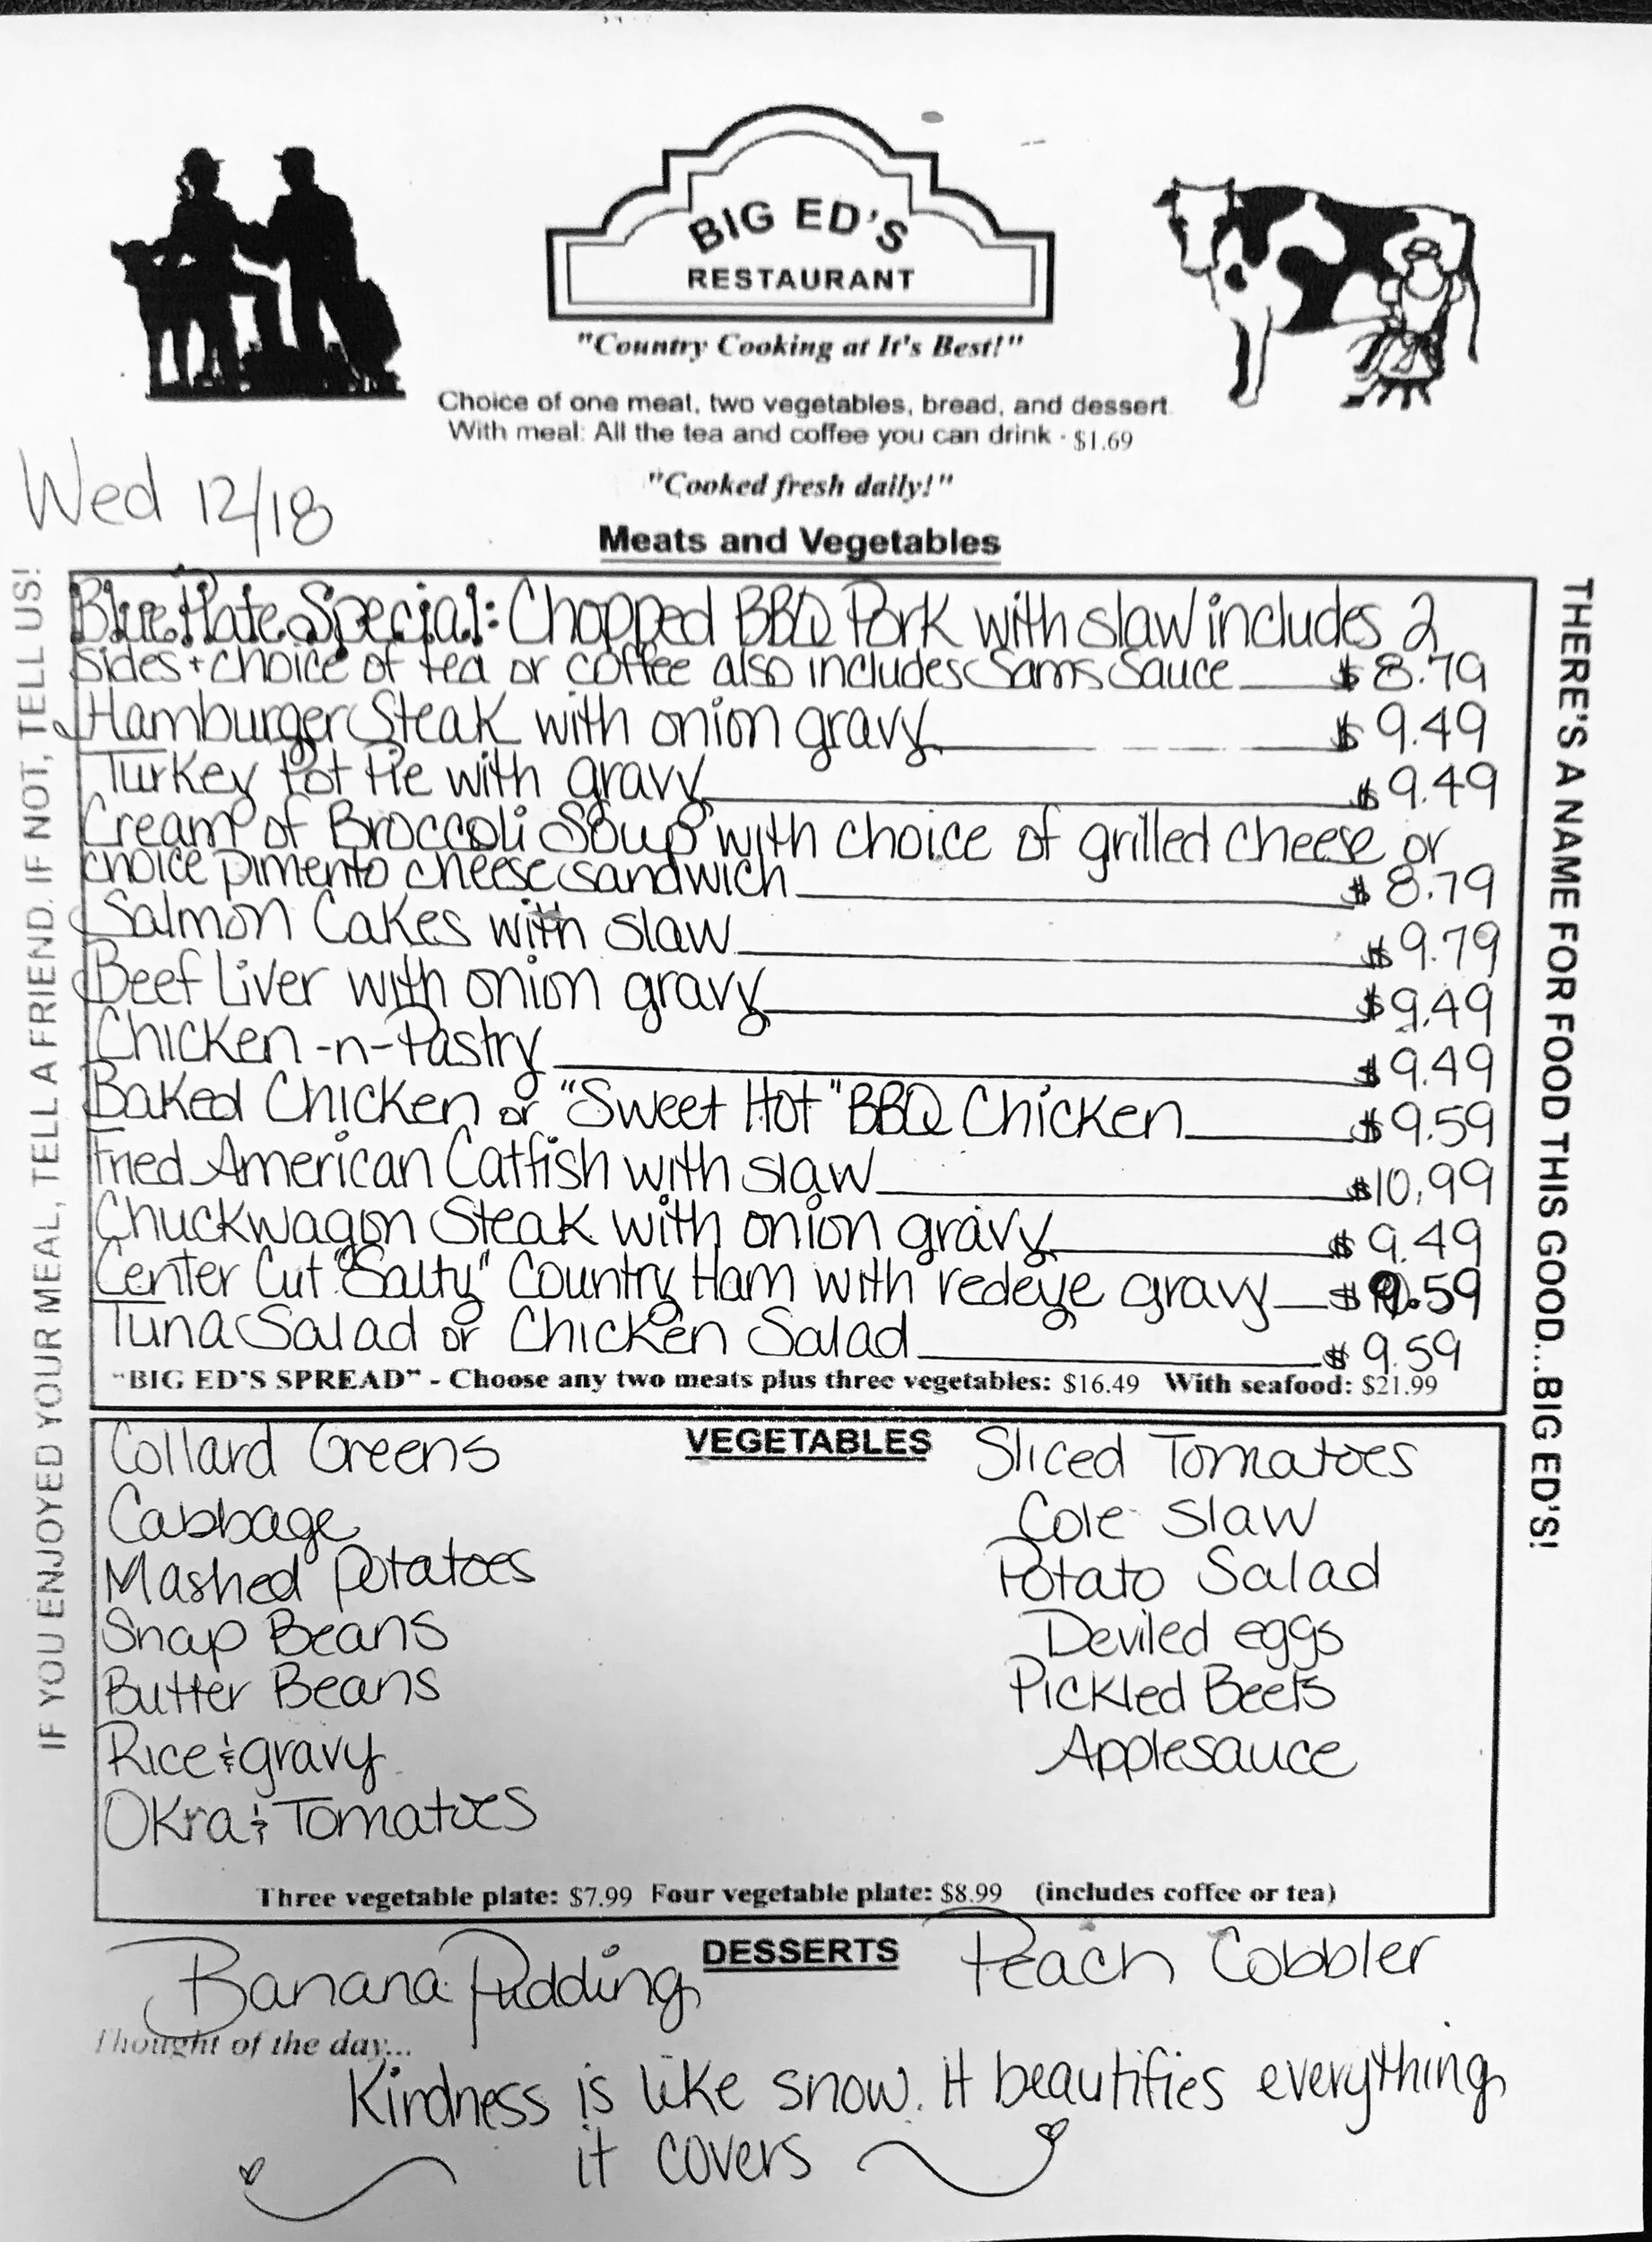 BIG ED'S
RESTAURANT
"Country Cooking at It's Best!"
Choice of one meat, two vegetables, bread, and dessert
With meal: All the tea and coffee you can drink - $1.69
"Cooked fresh daily!"
Wed 12/18
Meats and Vegetables
Blue Plate Special: Chopped BBQ Pork with slaw includes 2
sides + choice of tea or coffee also includes Sams Sauce $8.79
Hamburger Steak with onion gravy $9.49
Turkey Pot Pie with gravy $9.49
Cream of Broccoli Soup with choice of grilled cheese or
choice pimento cheese sandwich $8.79
Salmon Cakes with slaw $9.79
Beef Liver with onion gravy $9.49
Chicken-n-Pastry $9.49
Baked Chicken or "Sweet Hot" BBQ Chicken $9.59
Fried American Catfish with slaw $10.99
Chuckwagon Steak with onion gravy $9.49
Center Cut "Salty" Country Ham with redeye gravy $9.59
Tuna Salad or Chicken Salad $9.59
"BIG ED'S SPREAD" - Choose any two meats plus three vegetables: $16.49 With seafood: $21.99
VEGETABLES
Collard Greens
Cabbage
Mashed Potatoes
Snap Beans
Butter Beans
Rice & gravy
Okra & Tomatoes
Sliced Tomatoes
Cole Slaw
Potato Salad
Deviled eggs
Pickled Beets
Applesauce
Three vegetable plate: $7.99 Four vegetable plate: $8.99 (includes coffee or tea)
DESSERTS
Banana Pudding
Peach Cobbler
Thought of the day...
Kindness is like snow. It beautifies everything
it covers
IF YOU ENJOYED YOUR MEAL, TELL A FRIEND. IF NOT, TELL US!
THERE'S A NAME FOR FOOD THIS GOOD...BIG ED'S!